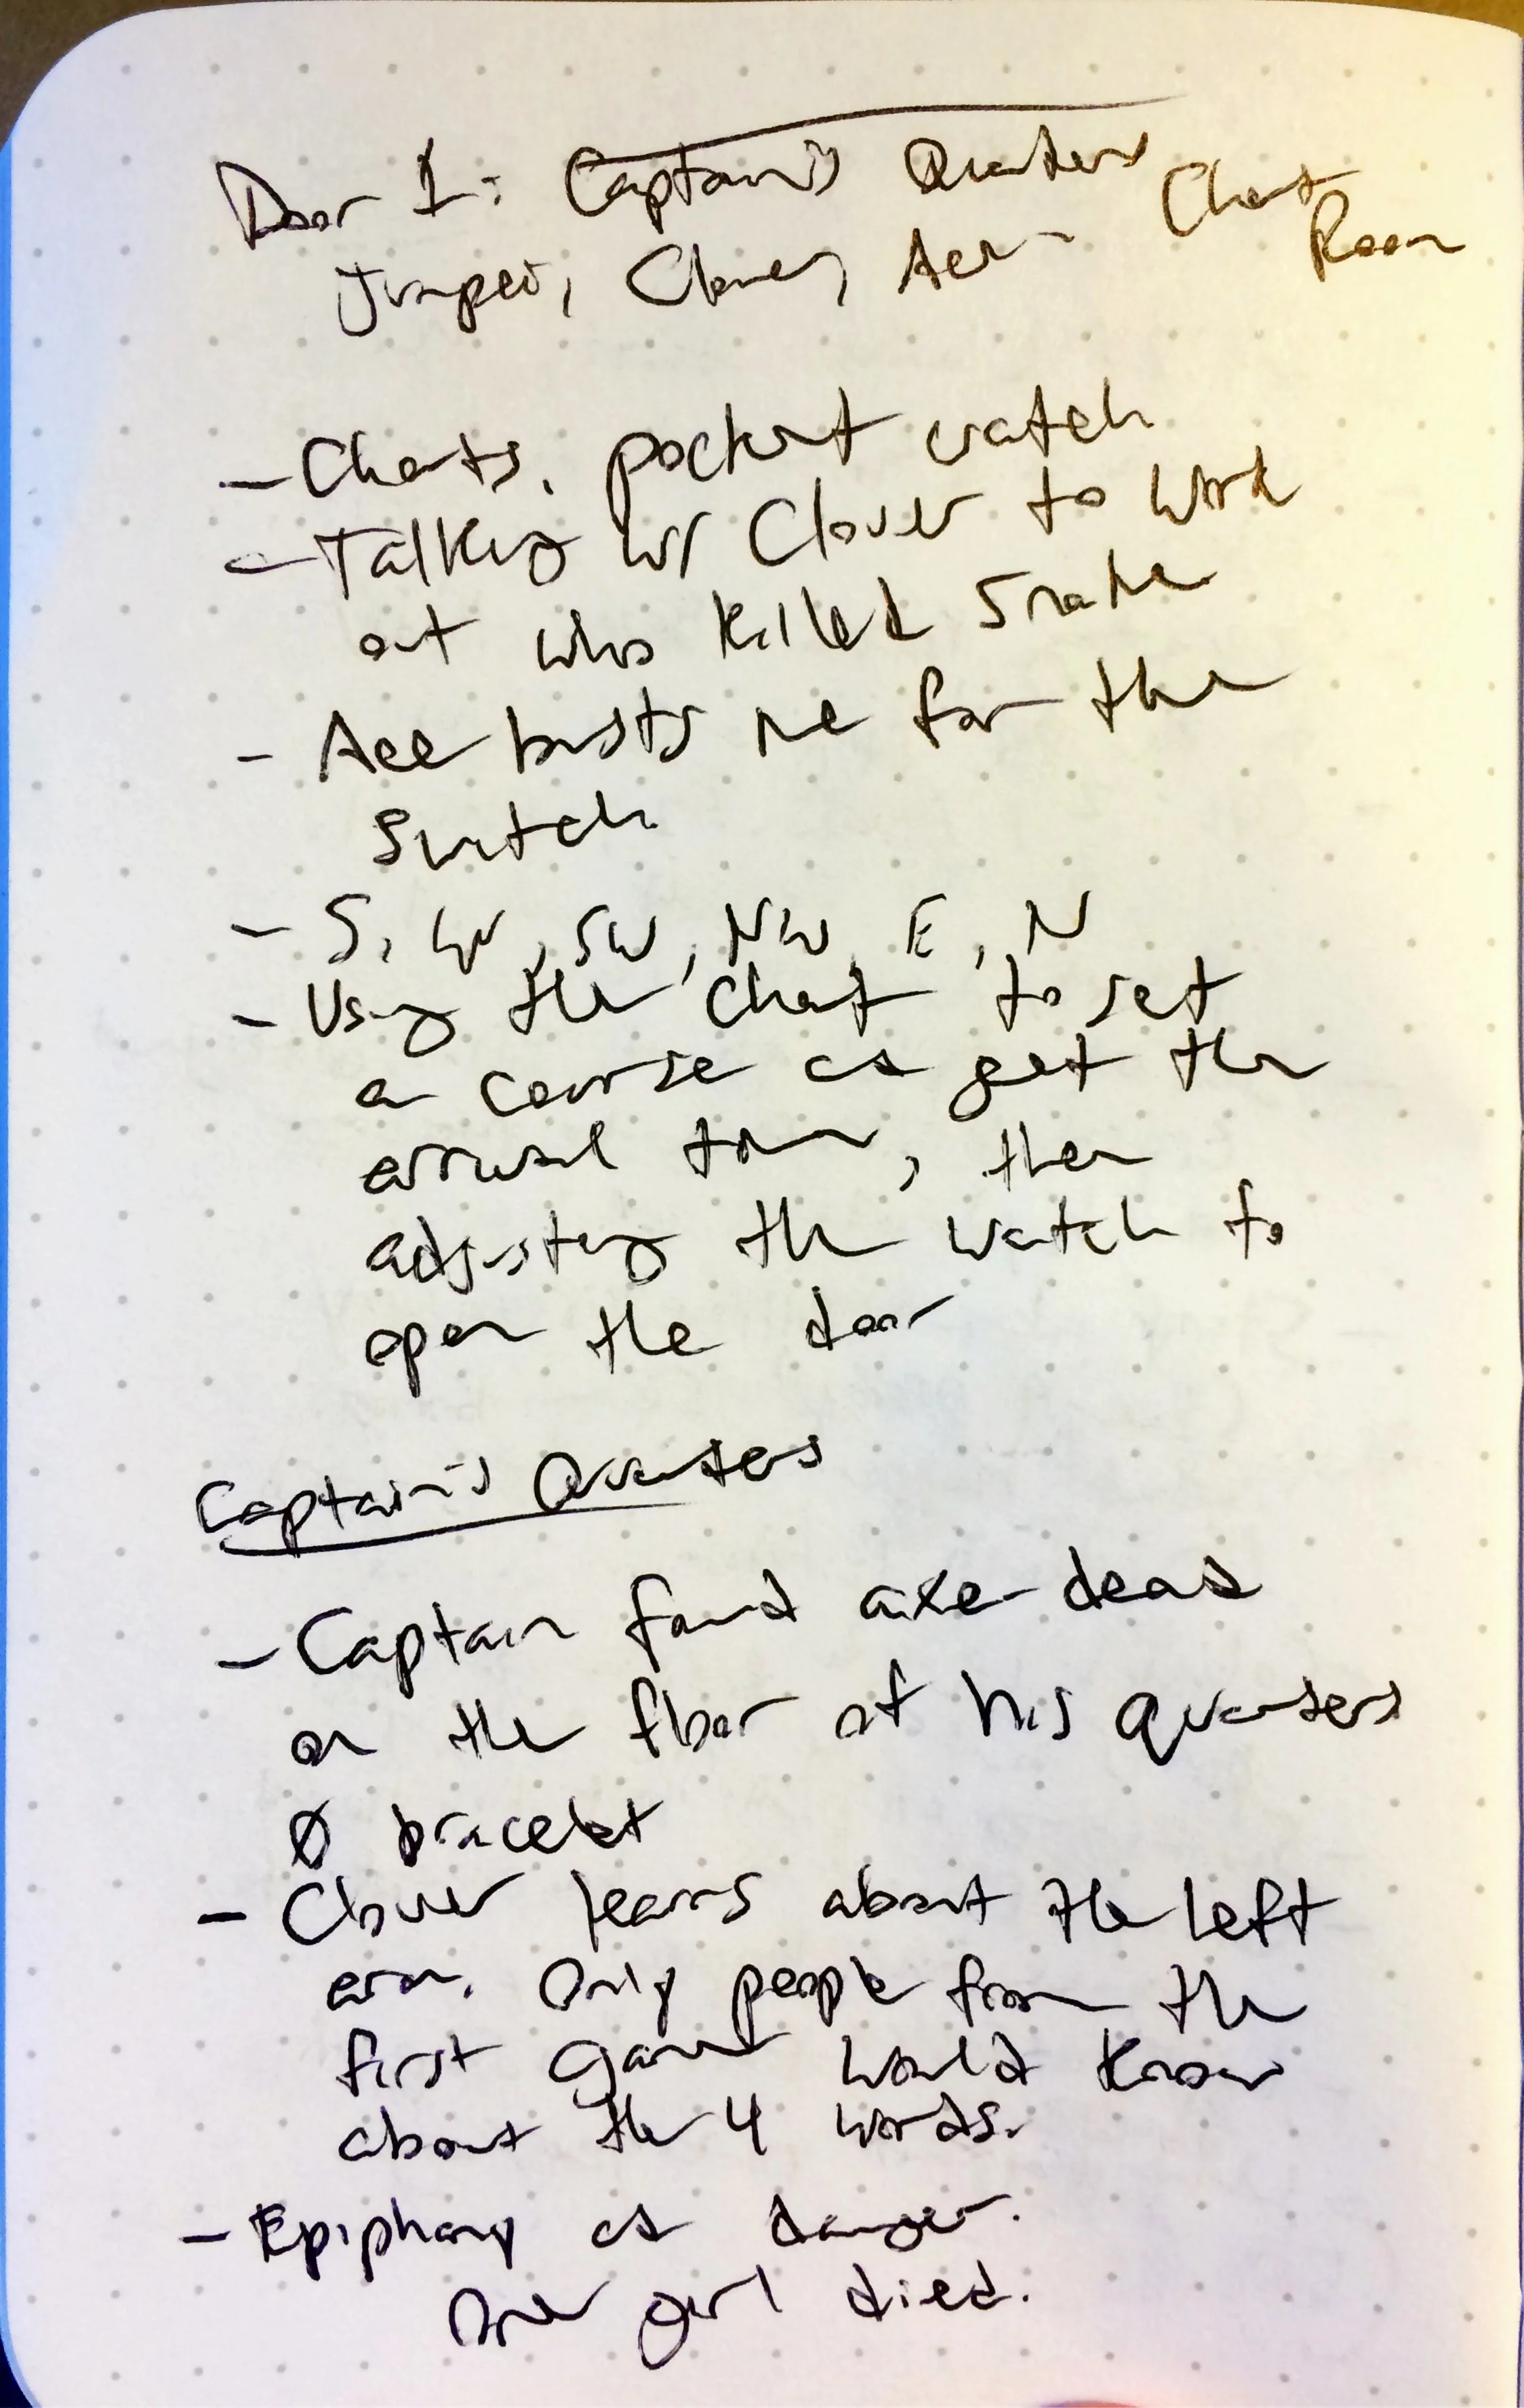 Door 1: Captain's Quarters Chart
Junpei, Clover, Ace - Room
- Charts, pocket watch
- Talking w/ Clover to work
out who killed Snake
- Ace busts me for the
switch
- S, W, SW, NW, E, N
- Using the chart to set
a course & get the
arrival time, then
adjusting the watch to
open the door
Captain's Quarters
- Captain found axe-dead
on the floor of his quarters
Ø bracelet
- Clover learns about the left
arm. Only people from the
first game would know
about the 4 words.
- Epiphany & danger.
One girl died.